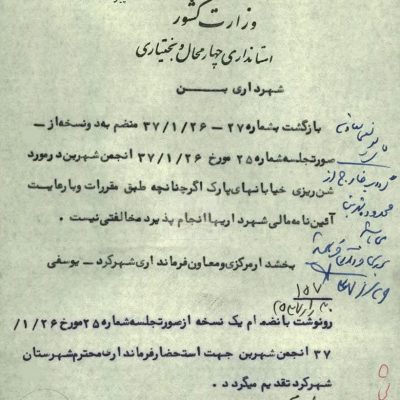 وزارت کشور
استانداری چهارمحال و بختیاری
شهرداری بن
بازگشت بشماره ۲۷-۳۷/۱/۲۶ منضم به دونسخه از -
صورتجلسه شماره ۲۵ مورخ ۳۷/۱/۲۶ انجمن شهرین درمورد
شن ریزی خیابانهای پارک اگرچنانچه طبق مقررات وبارعایت
آئین نامه مالی شهرداریها انجام پذیرد مخالفتی نیست.
بخشدارمرکزی ومعاون فرمانداری شهرکرد - یوسفی
۱۵۷
رونوشت بانضمام یک نسخه ازصورتجلسه شماره ۲۵ مورخ ۱/۲۶/
۳۷ انجمن شهرین جهت استحضارفرمانداری محترم شهرستان
شهرکردتقدیم میگردد.